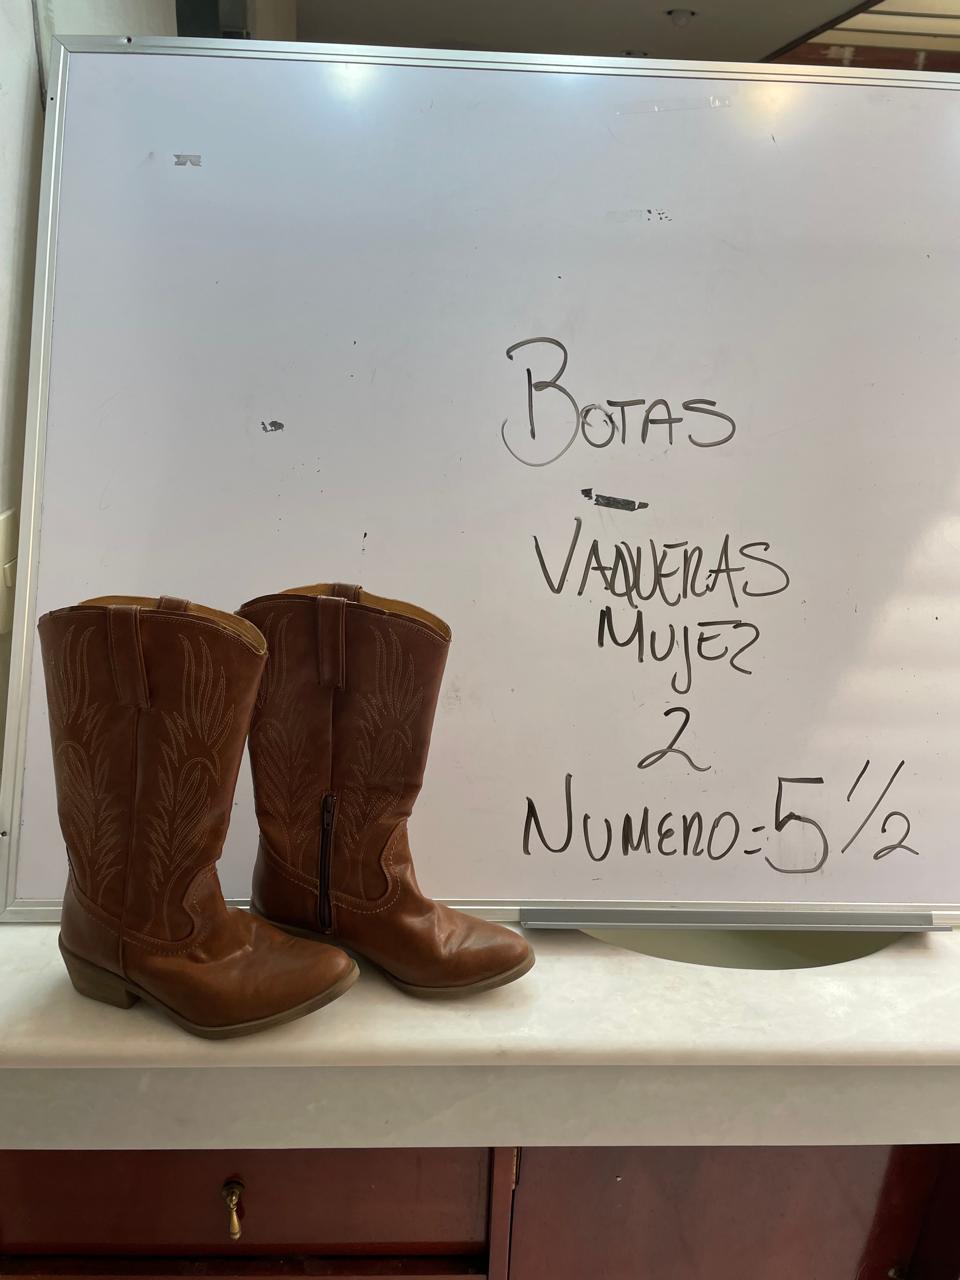 BOTAS
VAQUERAS
MUJER
2
NUMERO=5 1/2